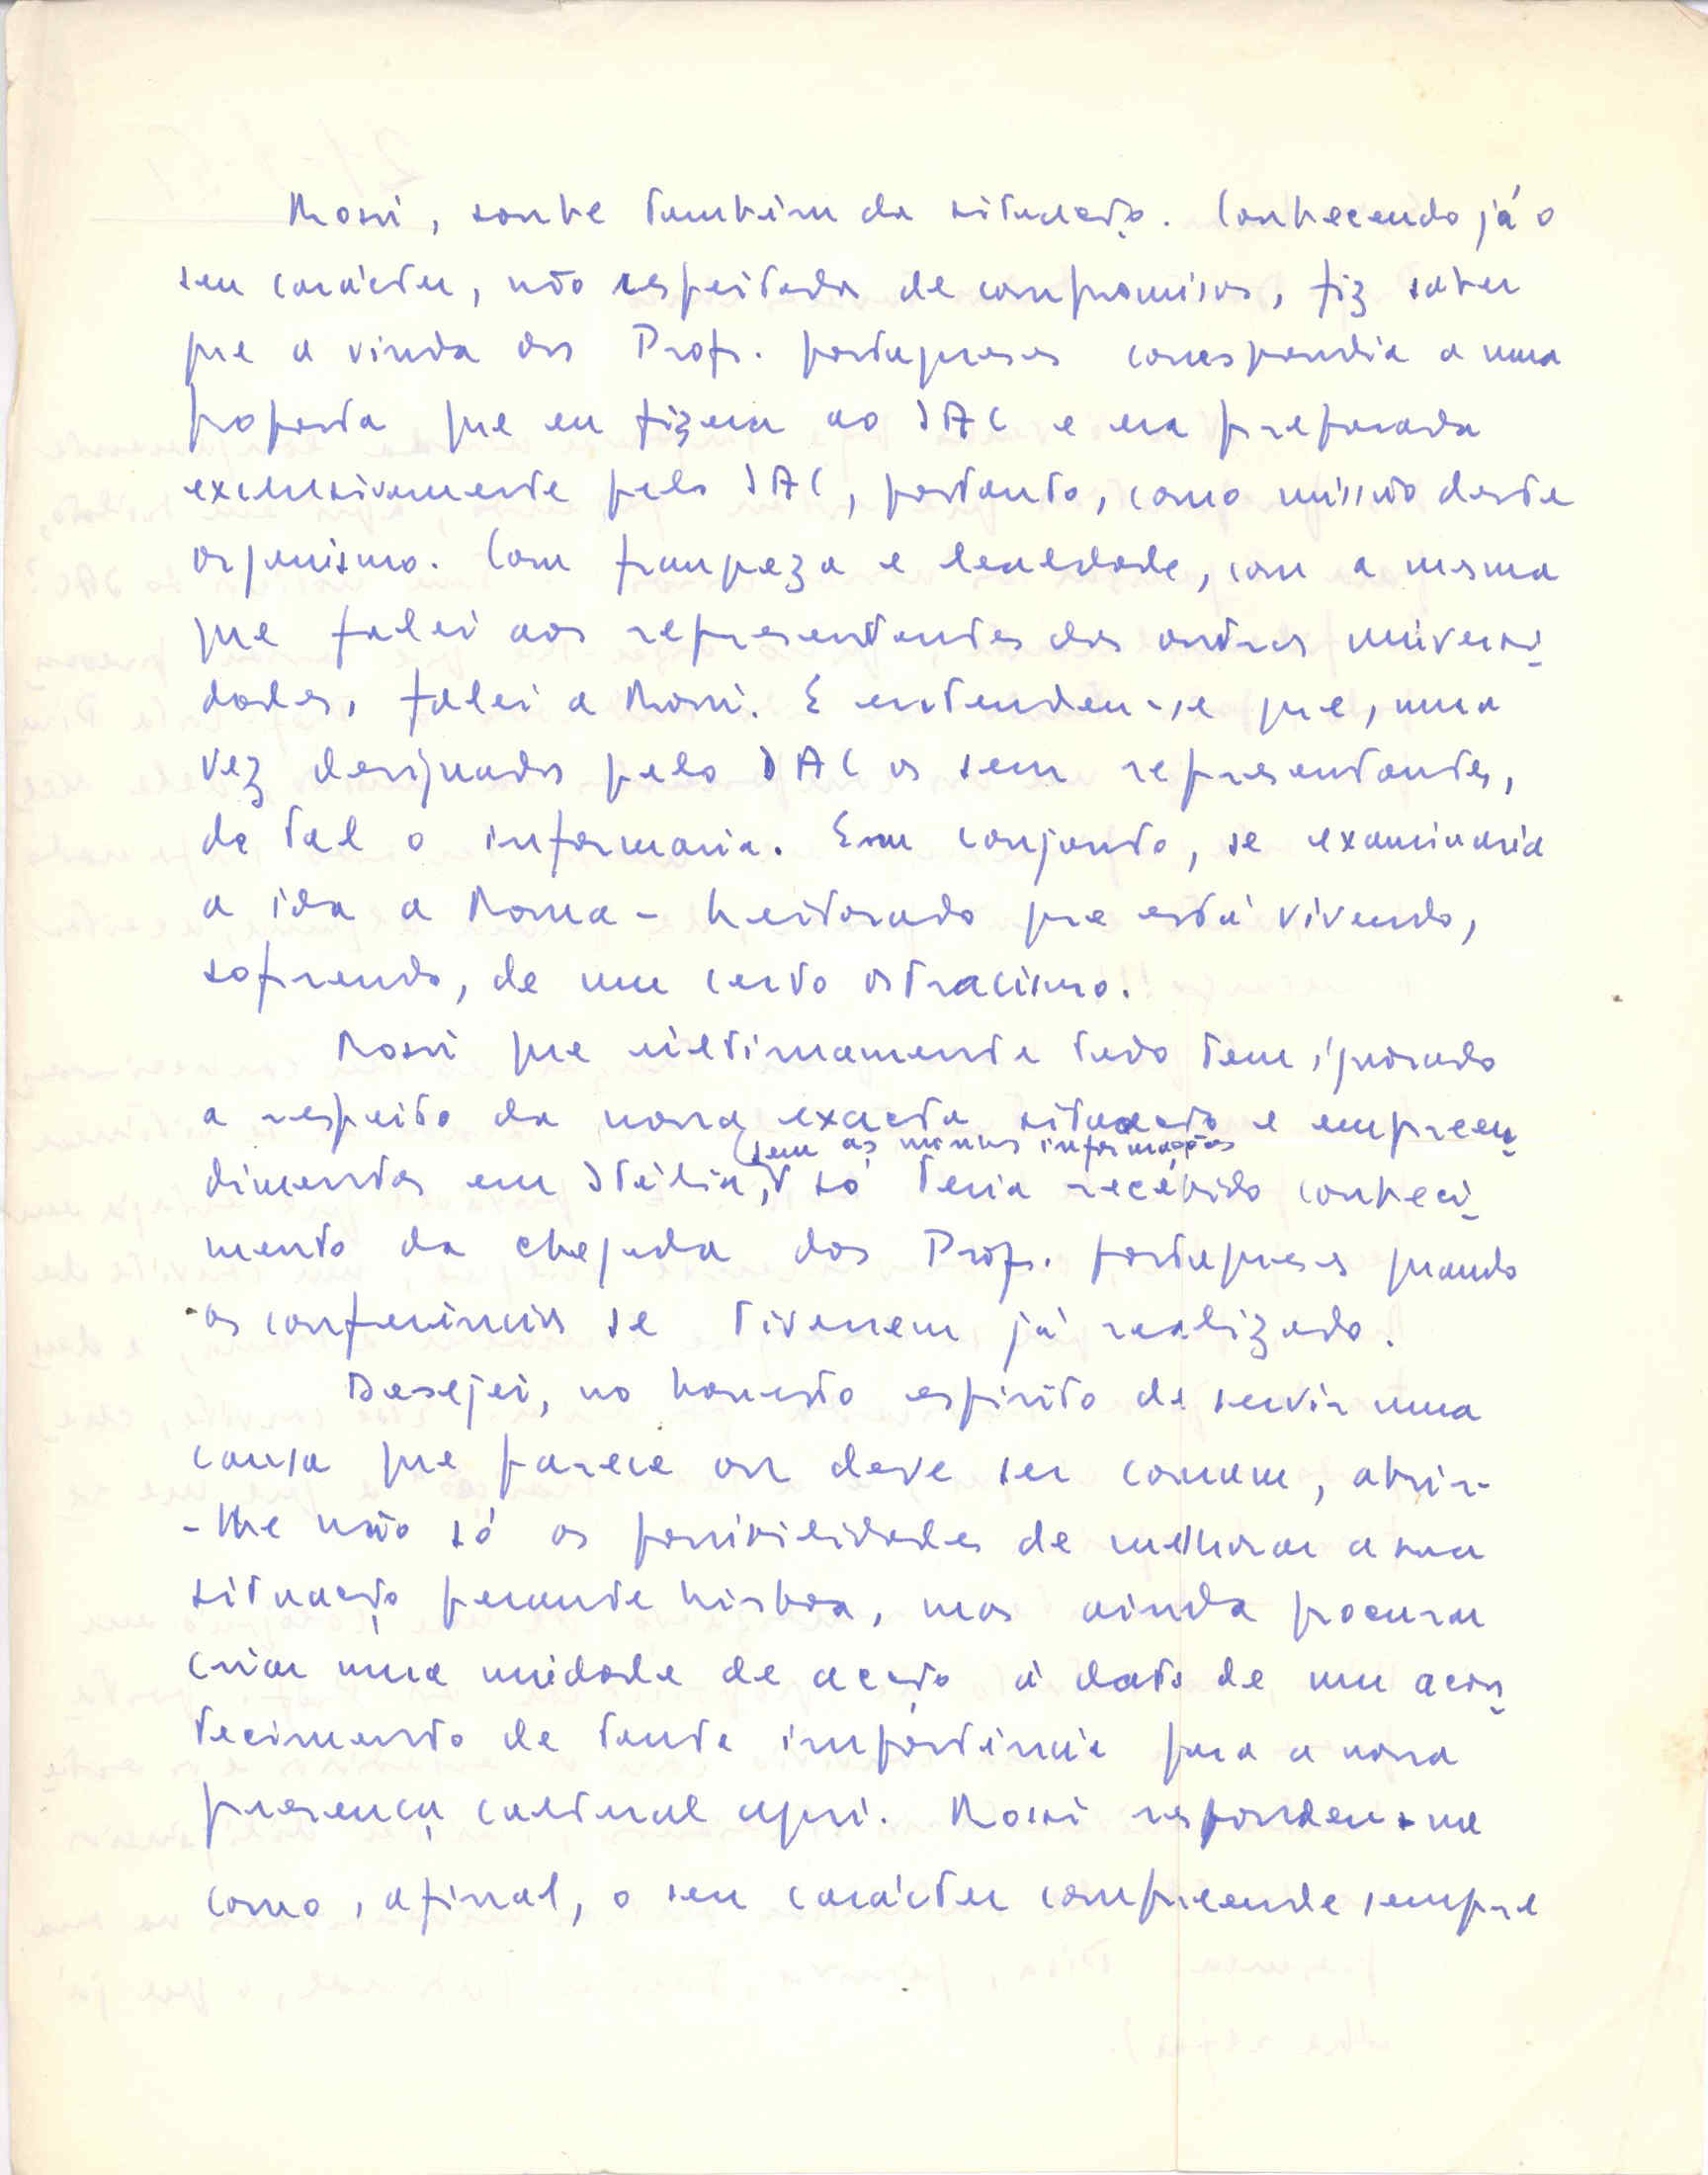 Rossi, soube também da situação. Conhecendo já o
seu carácter, não respeitador de compromissos, fiz saber
que a vinda dos Profs. portugueses correspondia a uma
proposta que eu fizera ao IAC e era preparada
exclusivamente pelo IAC, portanto, como missão deste
organismo. Com franqueza e lealdade, com a mesma
que falei aos representantes das outras universi-
dades, falei a Rossi. E entendeu-se que, uma
vez designados pelo IAC os seus representantes,
de tal o informaria. Em conjunto, se examinaria
a ida a Roma - Leitorado que está vivendo,
sofrendo, de um certo ostracismo.
Rossi que ultimamente tudo tem ignorado
a respeito da nossa exacta situação e empreen-
dimentos em Itália, sem as minhas informações só teria recebido conheci-
mento da chegada dos Profs. portugueses quando
as conferências se tivessem já realizado.
Desejei, no honesto espírito de servir uma
causa que parece ou deve ser comum, abrir-
-lhe não só as possibilidades de melhorar a sua
situação perante Lisboa, mas ainda procurar
criar uma unidade de acção à data de um acon-
tecimento de tanta importância para a nossa
presença cultural aqui. Rossi respondeu-me
como, afinal, o seu carácter compreende sempre